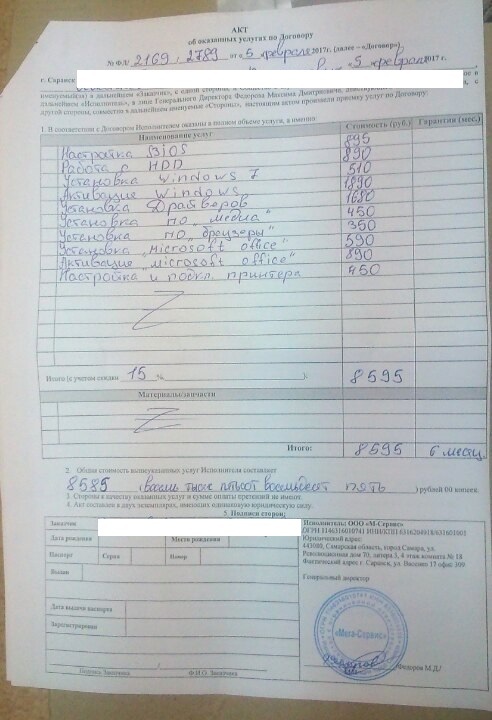 АКТ
об оказанных услугах по Договору
№ ФЛ/ 2169, 2789 от «5 февраля 2017г. (далее – «Договор»)
г. Саранск «5 февраля 2017 г.
именуемый) в дальнейшем «Заказчик», с одной стороны
дальнейшем «Исполнитель», в лице Генерального Директора Федорова Максима Дмитриевича,
другой стороны, совместно в дальнейшем именуемые «Стороны», настоящим актом произвели приемку услуг по Договору:
1. В соответствии с Договором Исполнителем оказаны в полном объеме услуги, а именно:
Наименование услуг Стоимость (руб.) Гарантия (мес.)
Настройка BiOS 895
Работа с HDD 890
Установка Windows 7 510
Активация Windows 1890
Установка Драйверов 1680
Установка ПО „медиа“ 450
Установка ПО „браузеры“ 350
Установка „Microsoft office“ 590
Активация „microsoft office“ 890
Настройка и подкл. принтера 450
Итого (с учетом скидки 15 %) 8595
Материалы/запчасти
Итого: 8595 6 месяц.
2. Общая стоимость вышеуказанных услуг Исполнителя составляет
8585 (восемь тысяч пятьсот восемьдесят пять) рублей 00 копеек.
3. Стороны к качеству оказанных услуг и сумме оплаты претензий не имеют.
4. Акт составлен в двух экземплярах, имеющих одинаковую юридическую силу.
5. Подписи сторон:
Заказчик
Дата рождения Место рождения
Паспорт Серия Номер
Выдан
Дата выдачи паспорта
Зарегистрирован
Подпись Заказчика Ф.И.О. Заказчика
Исполнитель: ООО «М-Сервис»
ОГРН 1146316010741 ИНН/КПП 6316204918/631601001
Юридический адрес:
443080, Самарская область, город Самара, ул.
Революционная дом 70, литера 3, 4 этаж комната № 18
Фактический адрес г. Саранск, ул. Васенко 17 офис 300
Генеральный директор
«Мега-Сервис»
Федоров М.Д./